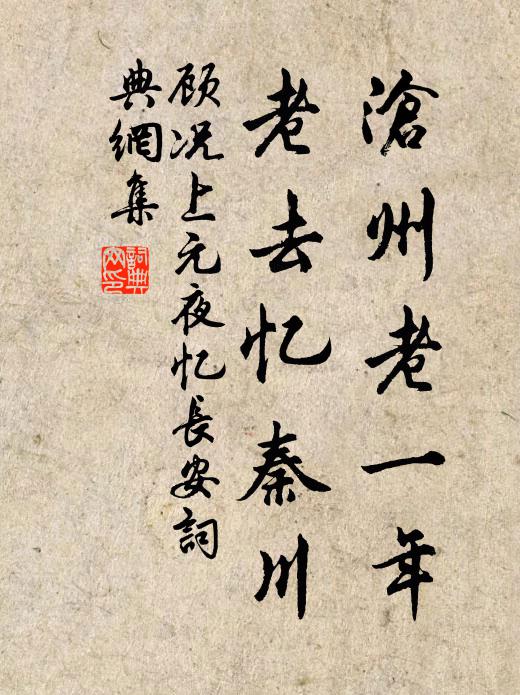 滄州老一年
老去忆秦川
顾况上元夜忆長安詞
典網集
詞典